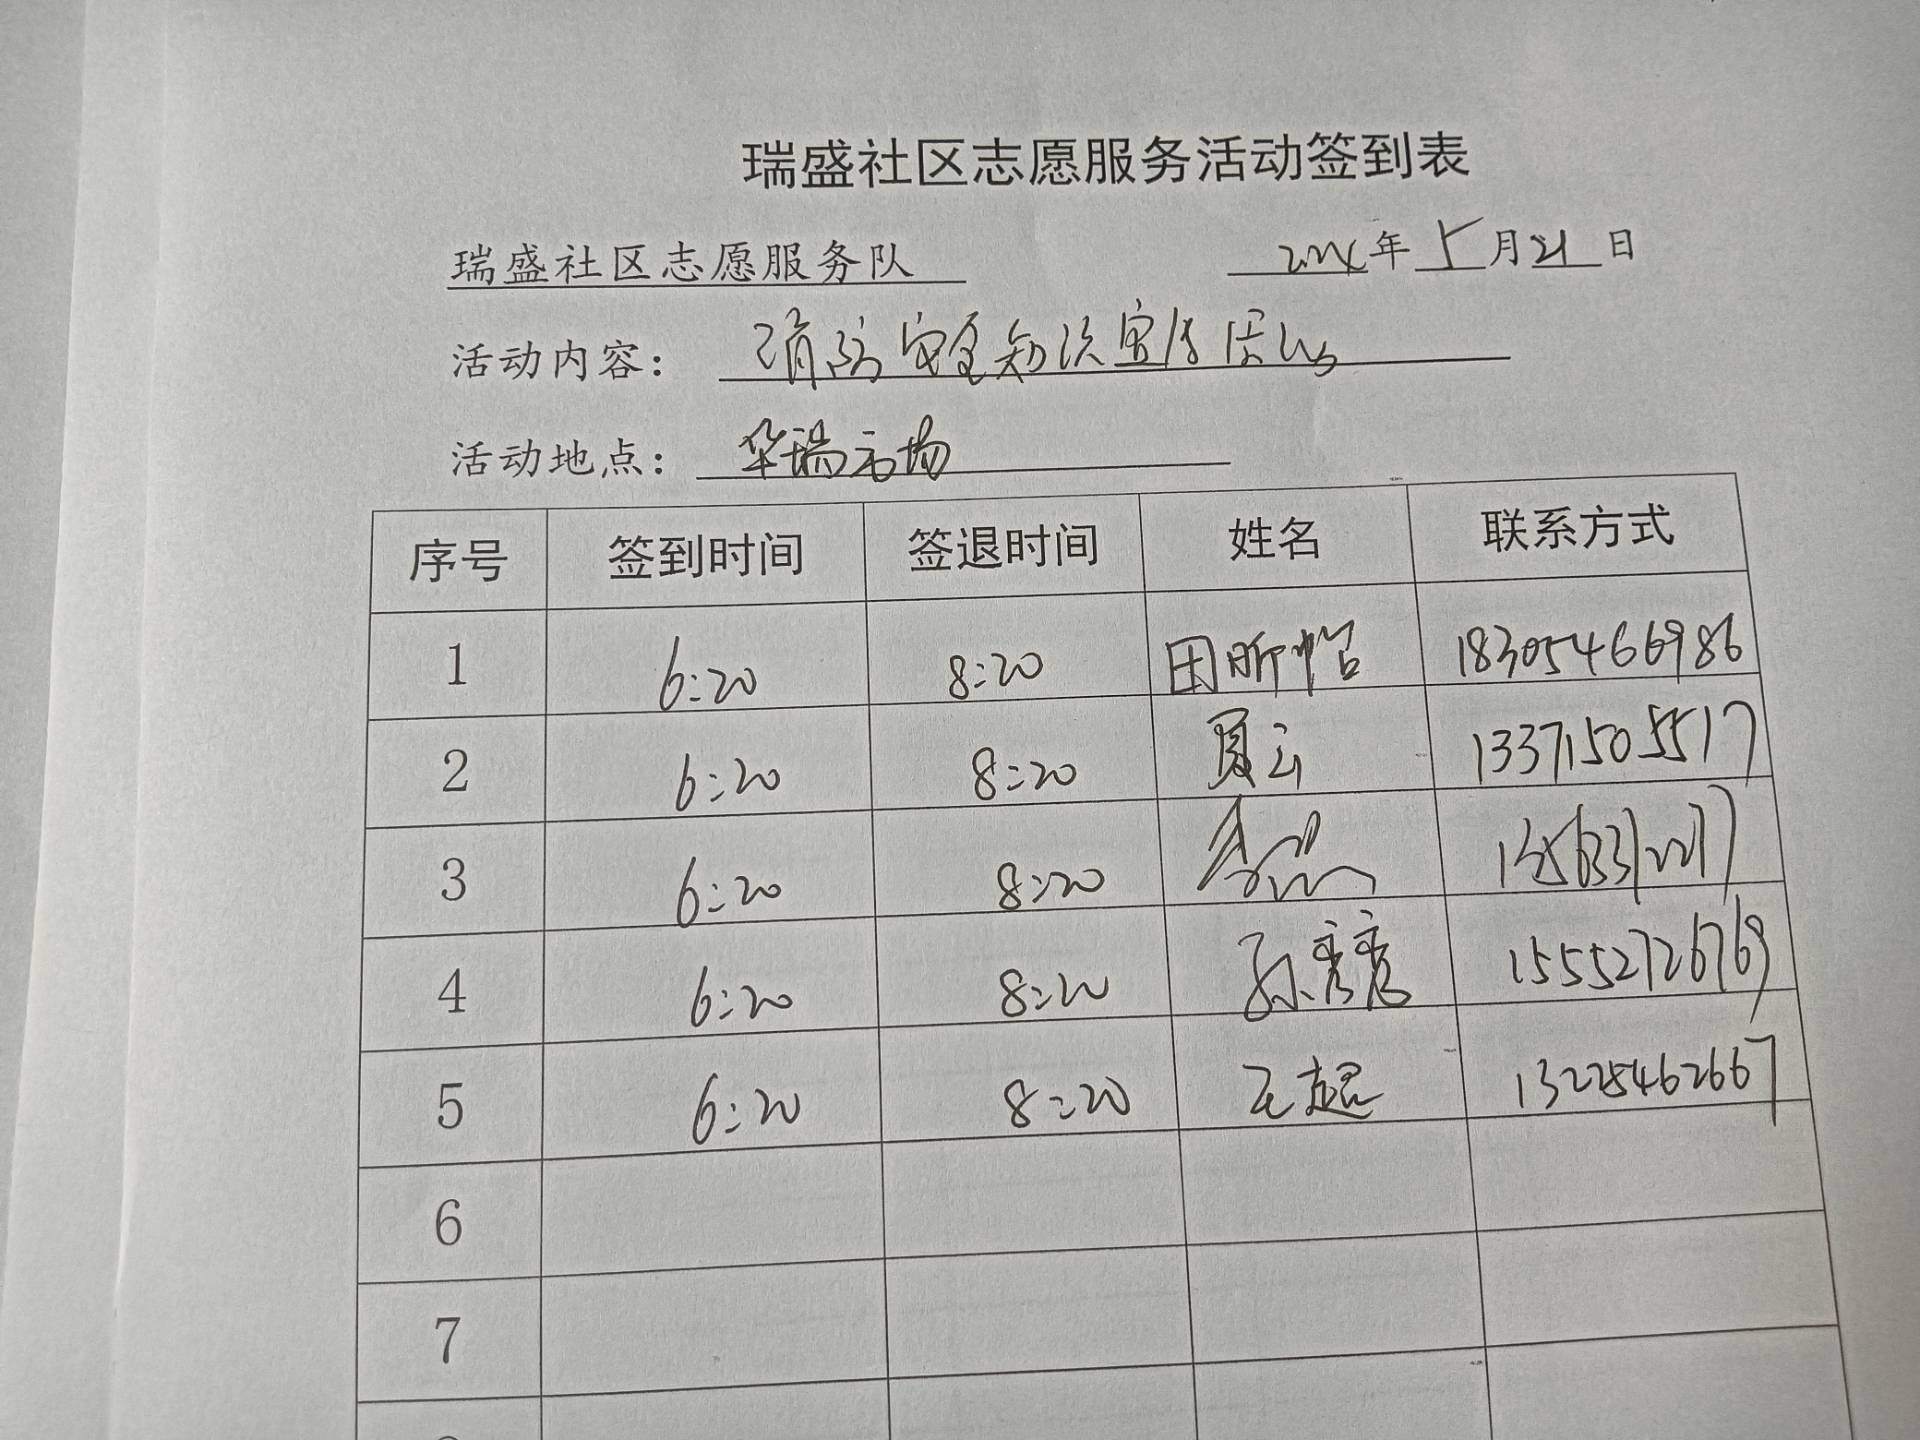 瑞盛社区志愿服务活动签到表
瑞盛社区志愿服务队 年 5 月 21 日
活动内容: 消防安全知识宣传活动
活动地点: 华瑞市场
序号 签到时间 签退时间 姓名 联系方式
1 6:20 8:20 田昕怡 18305466986
2 6:20 8:20 贾云 13371505517
3 6:20 8:20
4 6:20 8:20 孙秀秀 15552726769
5 6:20 8:20 王超 13225462667
6
7